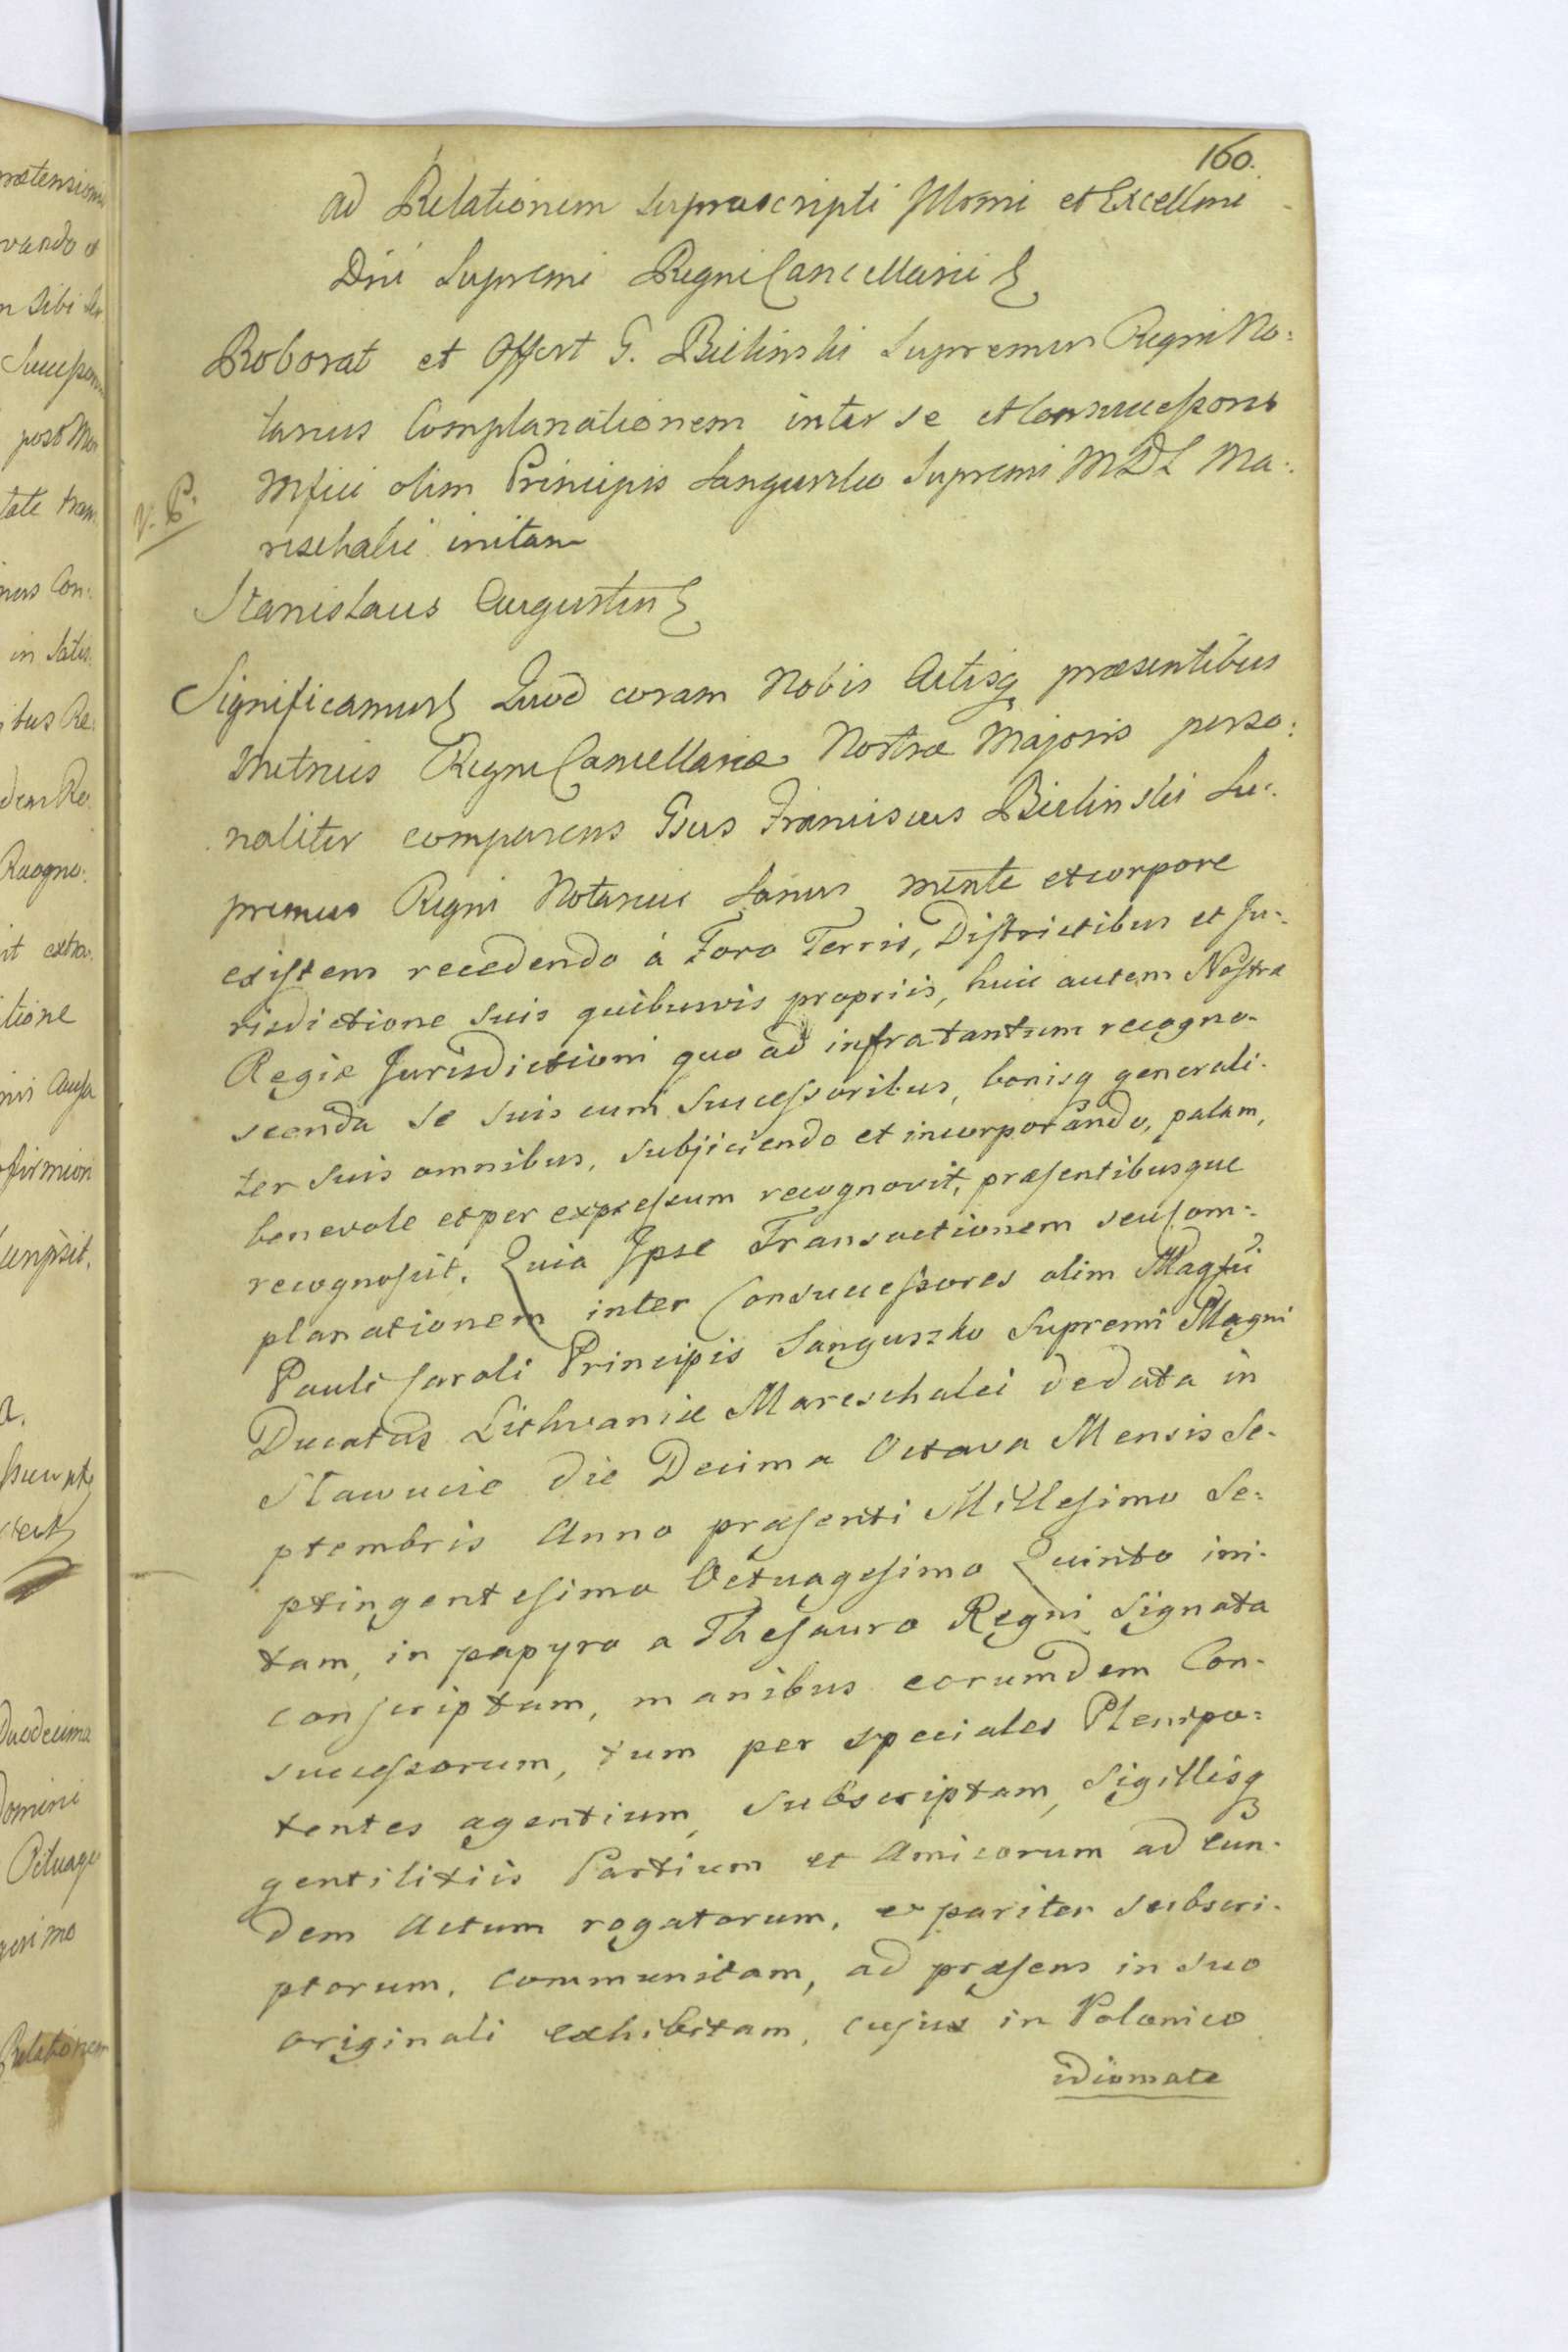 160.
ad Relationem suprascripti Illmi et Excellmi
Dni Supremi Regni Cancellarii
Roborat et Offert G. Bielinski Supremus Regni No:
tarius Complanationem inter se et Consuccessores
Mfici olim Principis Sanguszko Supremi MDL Ma:
reschalci initam
V. P.
Stanislaus Augustus
Significamus Quod coram Nobis Actisq præsentibus
Metrices Regni Cancellariæ Nostræ Majoris perso:
naliter comparens Gsus Franciscus Bielinski Su:
premus Regni Notarius Sanus mente et corpore
existens recedendo á Foro Terris, Districtibus et Ju:
risdictione suis quibusvis propriis, huic autem Nostræ
Regiæ Jurisdictioni quo ad infra tantum recogno-
scenda se suis cum Successoribus, bonisq generali-
ter suis omnibus, subjiciendo et incorporando, palam,
benevole et per expressum recognovit, præsentibusque
recognoscit. Quia Ipse Transactionem seu Com:
planationem inter Consuccessores olim Magfci
Pauli Caroli Principis Sanguszko Supremi Magni
Ducatus Lithvaniæ Mareschalci de data in
Stawucie die Decima Octava Mensis Se-
ptembris Anno præsenti Millesimo Se:
ptingentesimo Octuagesimo Quinto ini-
tam, in papyro a Thesauro Regni Signata
conscriptam, manibus eorumdem Con-
successorum, tum per speciales Plenipo:
tentes agentium, subscriptam, Sigillisq
gentilitiis Partium et Amicorum ad eun-
dem Actum rogatorum, et pariter subscri-
ptorum, communitam, ad præsens in suo
originali exhibitam, cujus in Polonico
idiomate